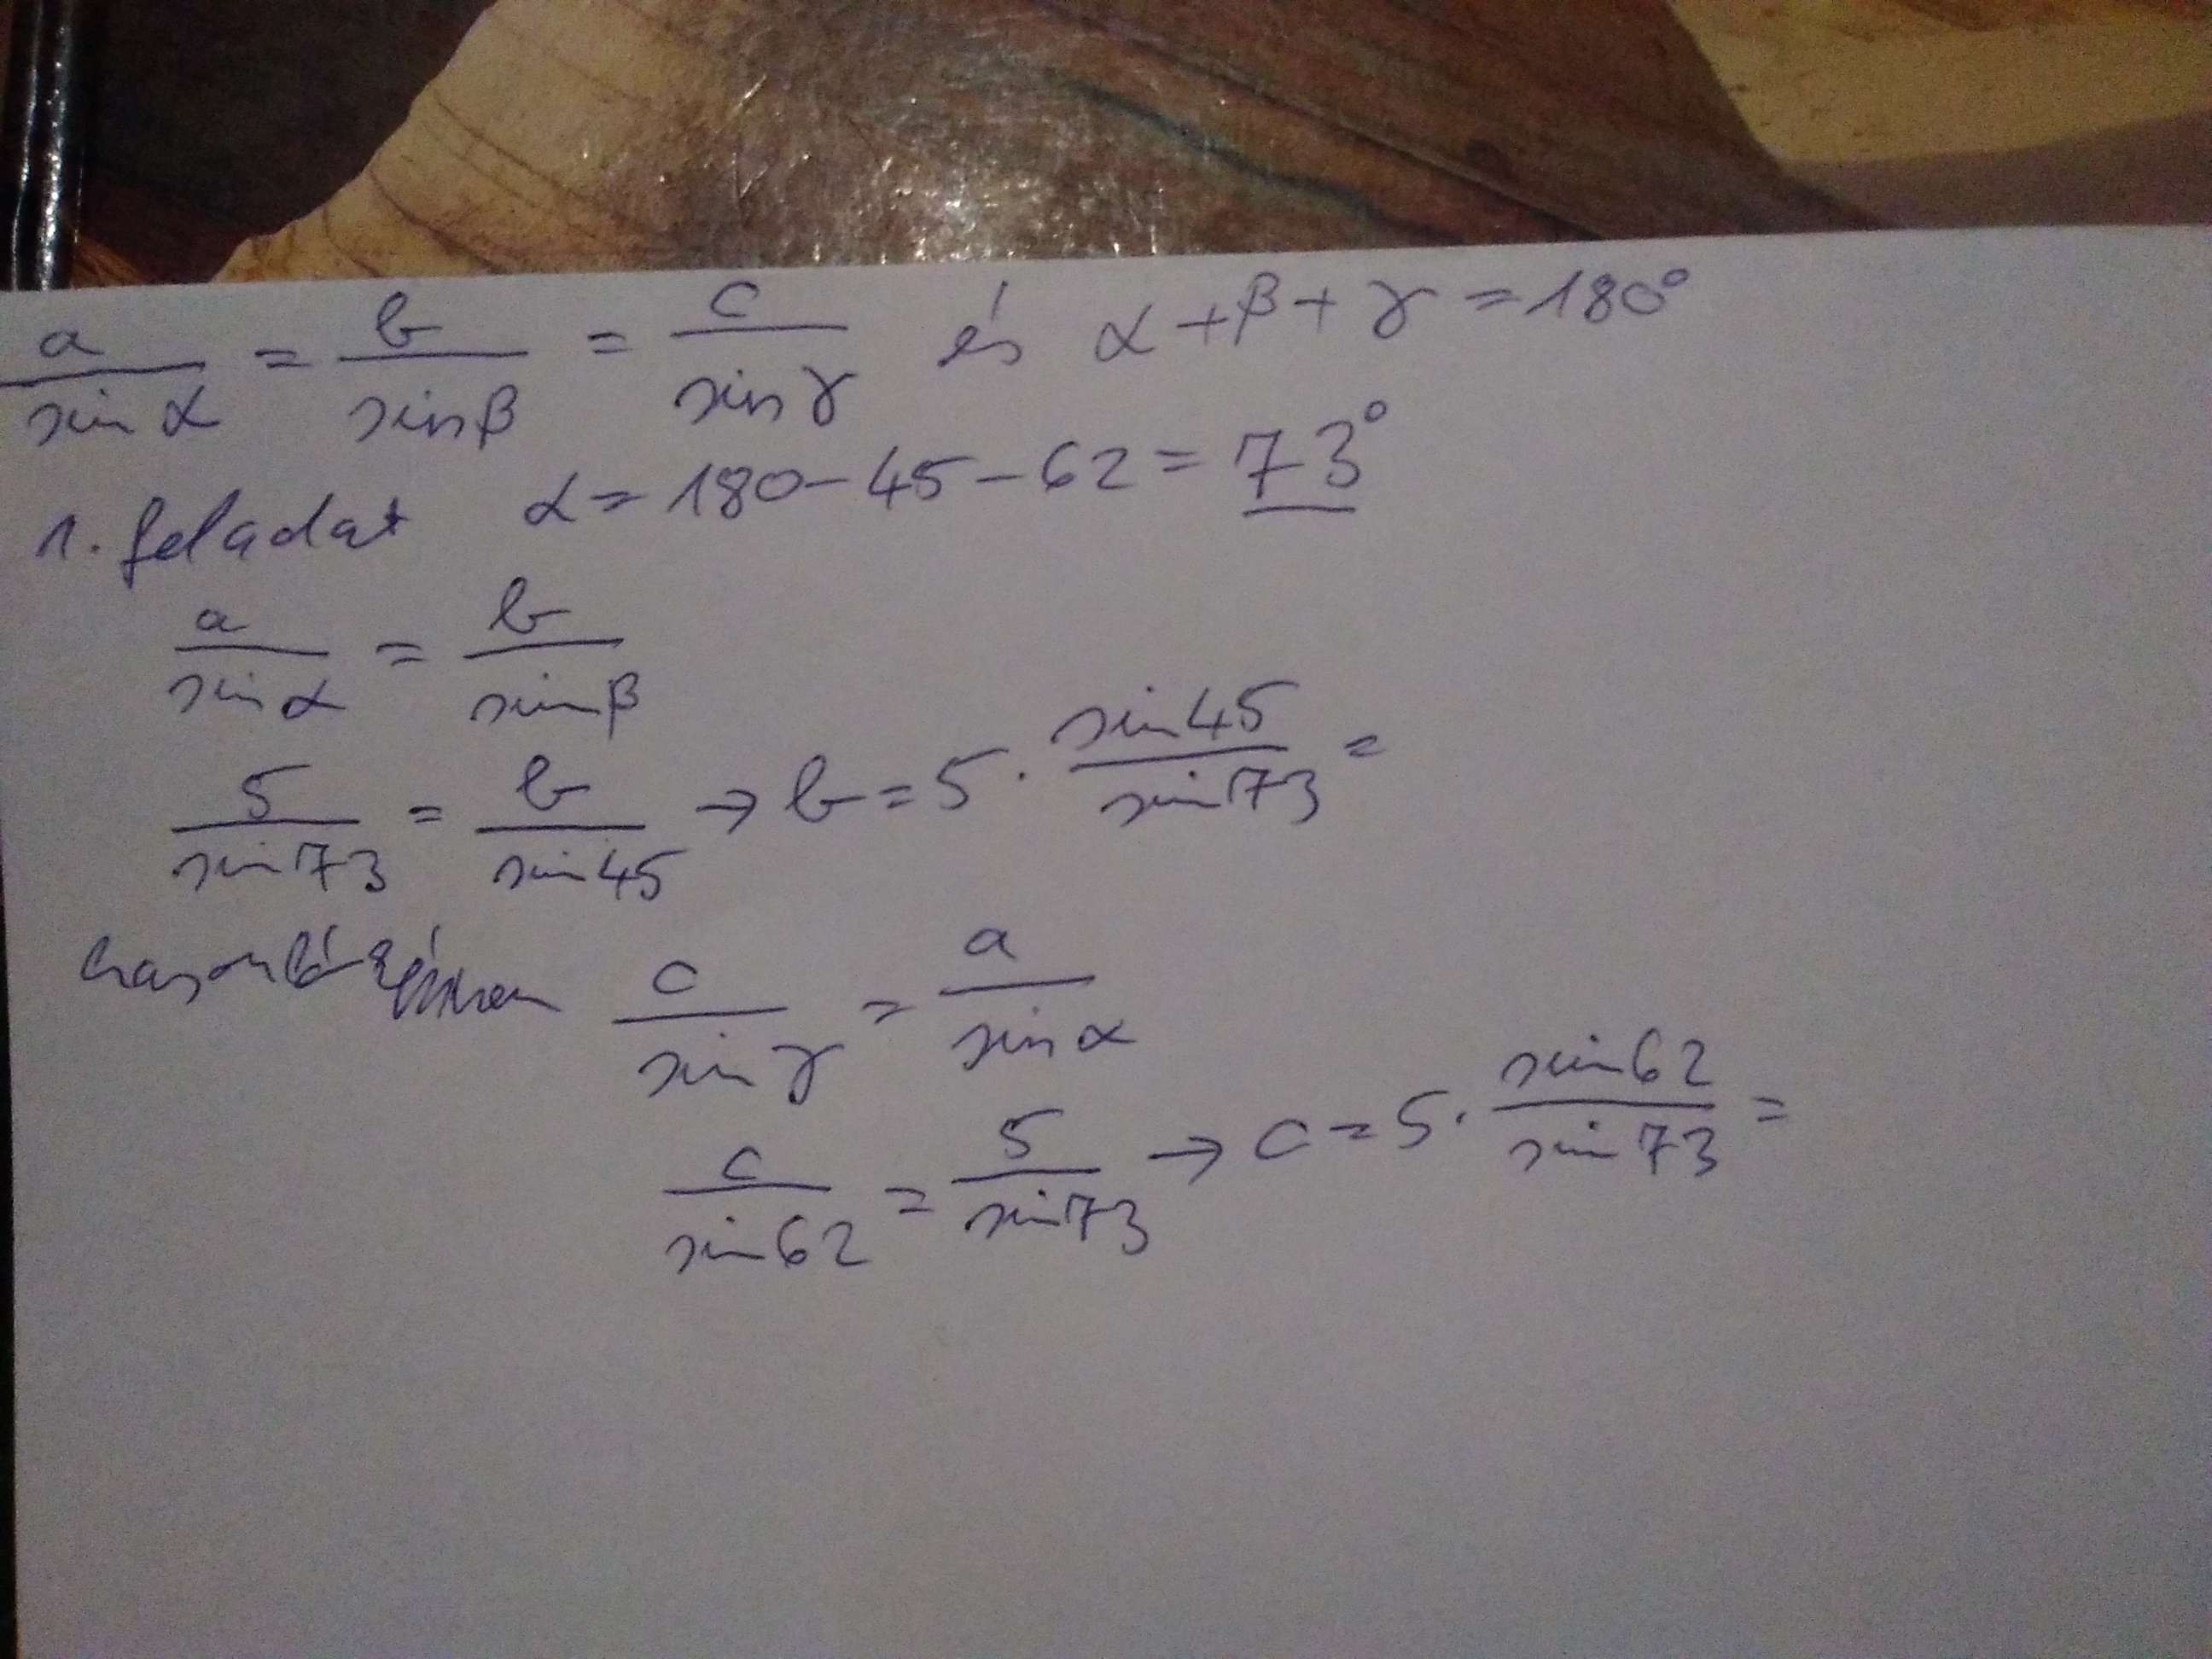 a/sinα = b/sinβ = c/sinγ és α+β+γ=180°
1. feladat α=180-45-62=73°
a/sinα = b/sinβ
5/sin73 = b/sin45 → b=5·sin45/sin73=
hasonlóképpen c/sinγ = a/sinα
c/sin62 = 5/sin73 → c=5·sin62/sin73=